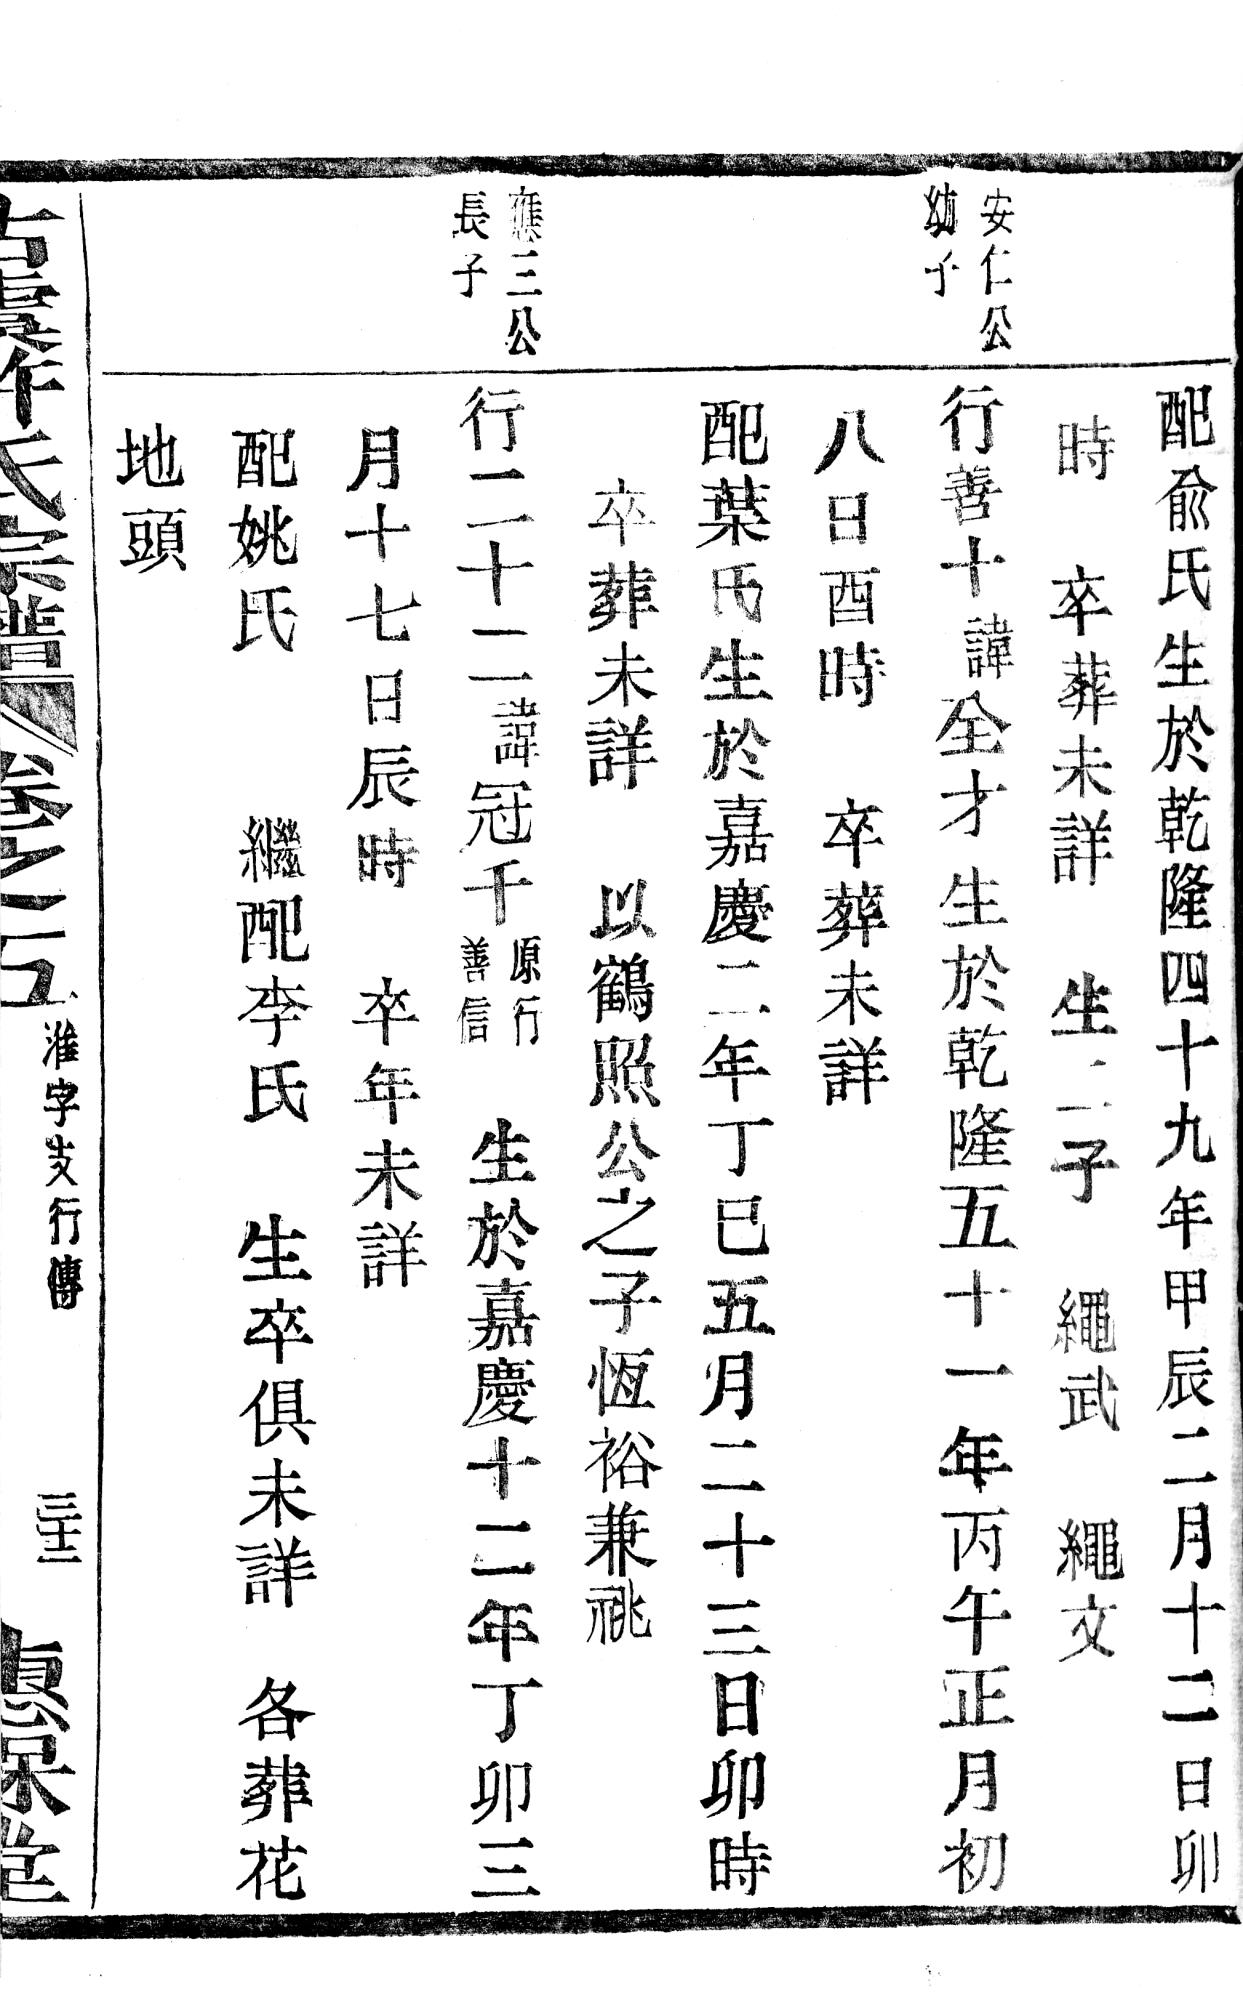 配兪氏生於乾隆四十九年甲辰二月十二日卯
時　卒葬未詳　生二子　繩武　繩文
安仁公
幼子
行善十諱全才生於乾隆五十一年丙午正月初
八日酉時　卒葬未詳
配葉氏生於嘉慶二年丁巳五月二十三日卯時
卒葬未詳　以鶴照公之子恆裕兼祧
應三公
長子
行二十二諱冠千原行善信　生於嘉慶十二年丁卯三
月十七日辰時　卒年未詳
配姚氏　繼配李氏　生卒俱未詳　各葬花
地頭
古虞許氏宗譜　卷之五　淮字支行傳　三十二　保堂